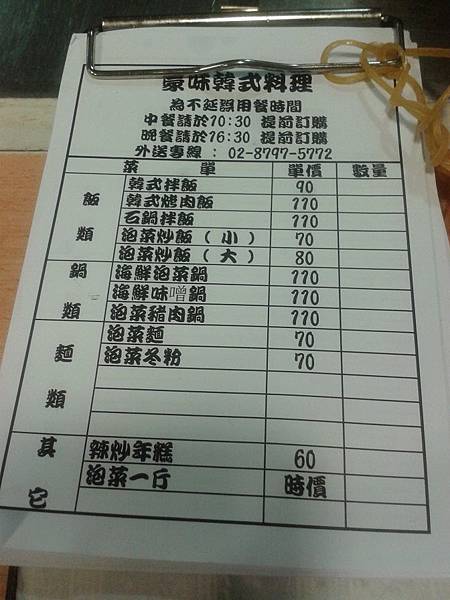 豪味韓式料理
為不延誤用餐時間
中餐請於10:30 提前訂購
晚餐請於16:30 提前訂購
外送專線：02-8797-5772
菜 單 單價 數量
飯類
韓式拌飯 90
韓式烤肉飯 110
石鍋拌飯 110
泡菜炒飯（小） 70
泡菜炒飯（大） 80
鍋類
海鮮泡菜鍋 110
海鮮味噌鍋 110
泡菜豬肉鍋 110
麵類
泡菜麵 70
泡菜冬粉 70
其它
辣炒年糕 60
泡菜一斤 時價